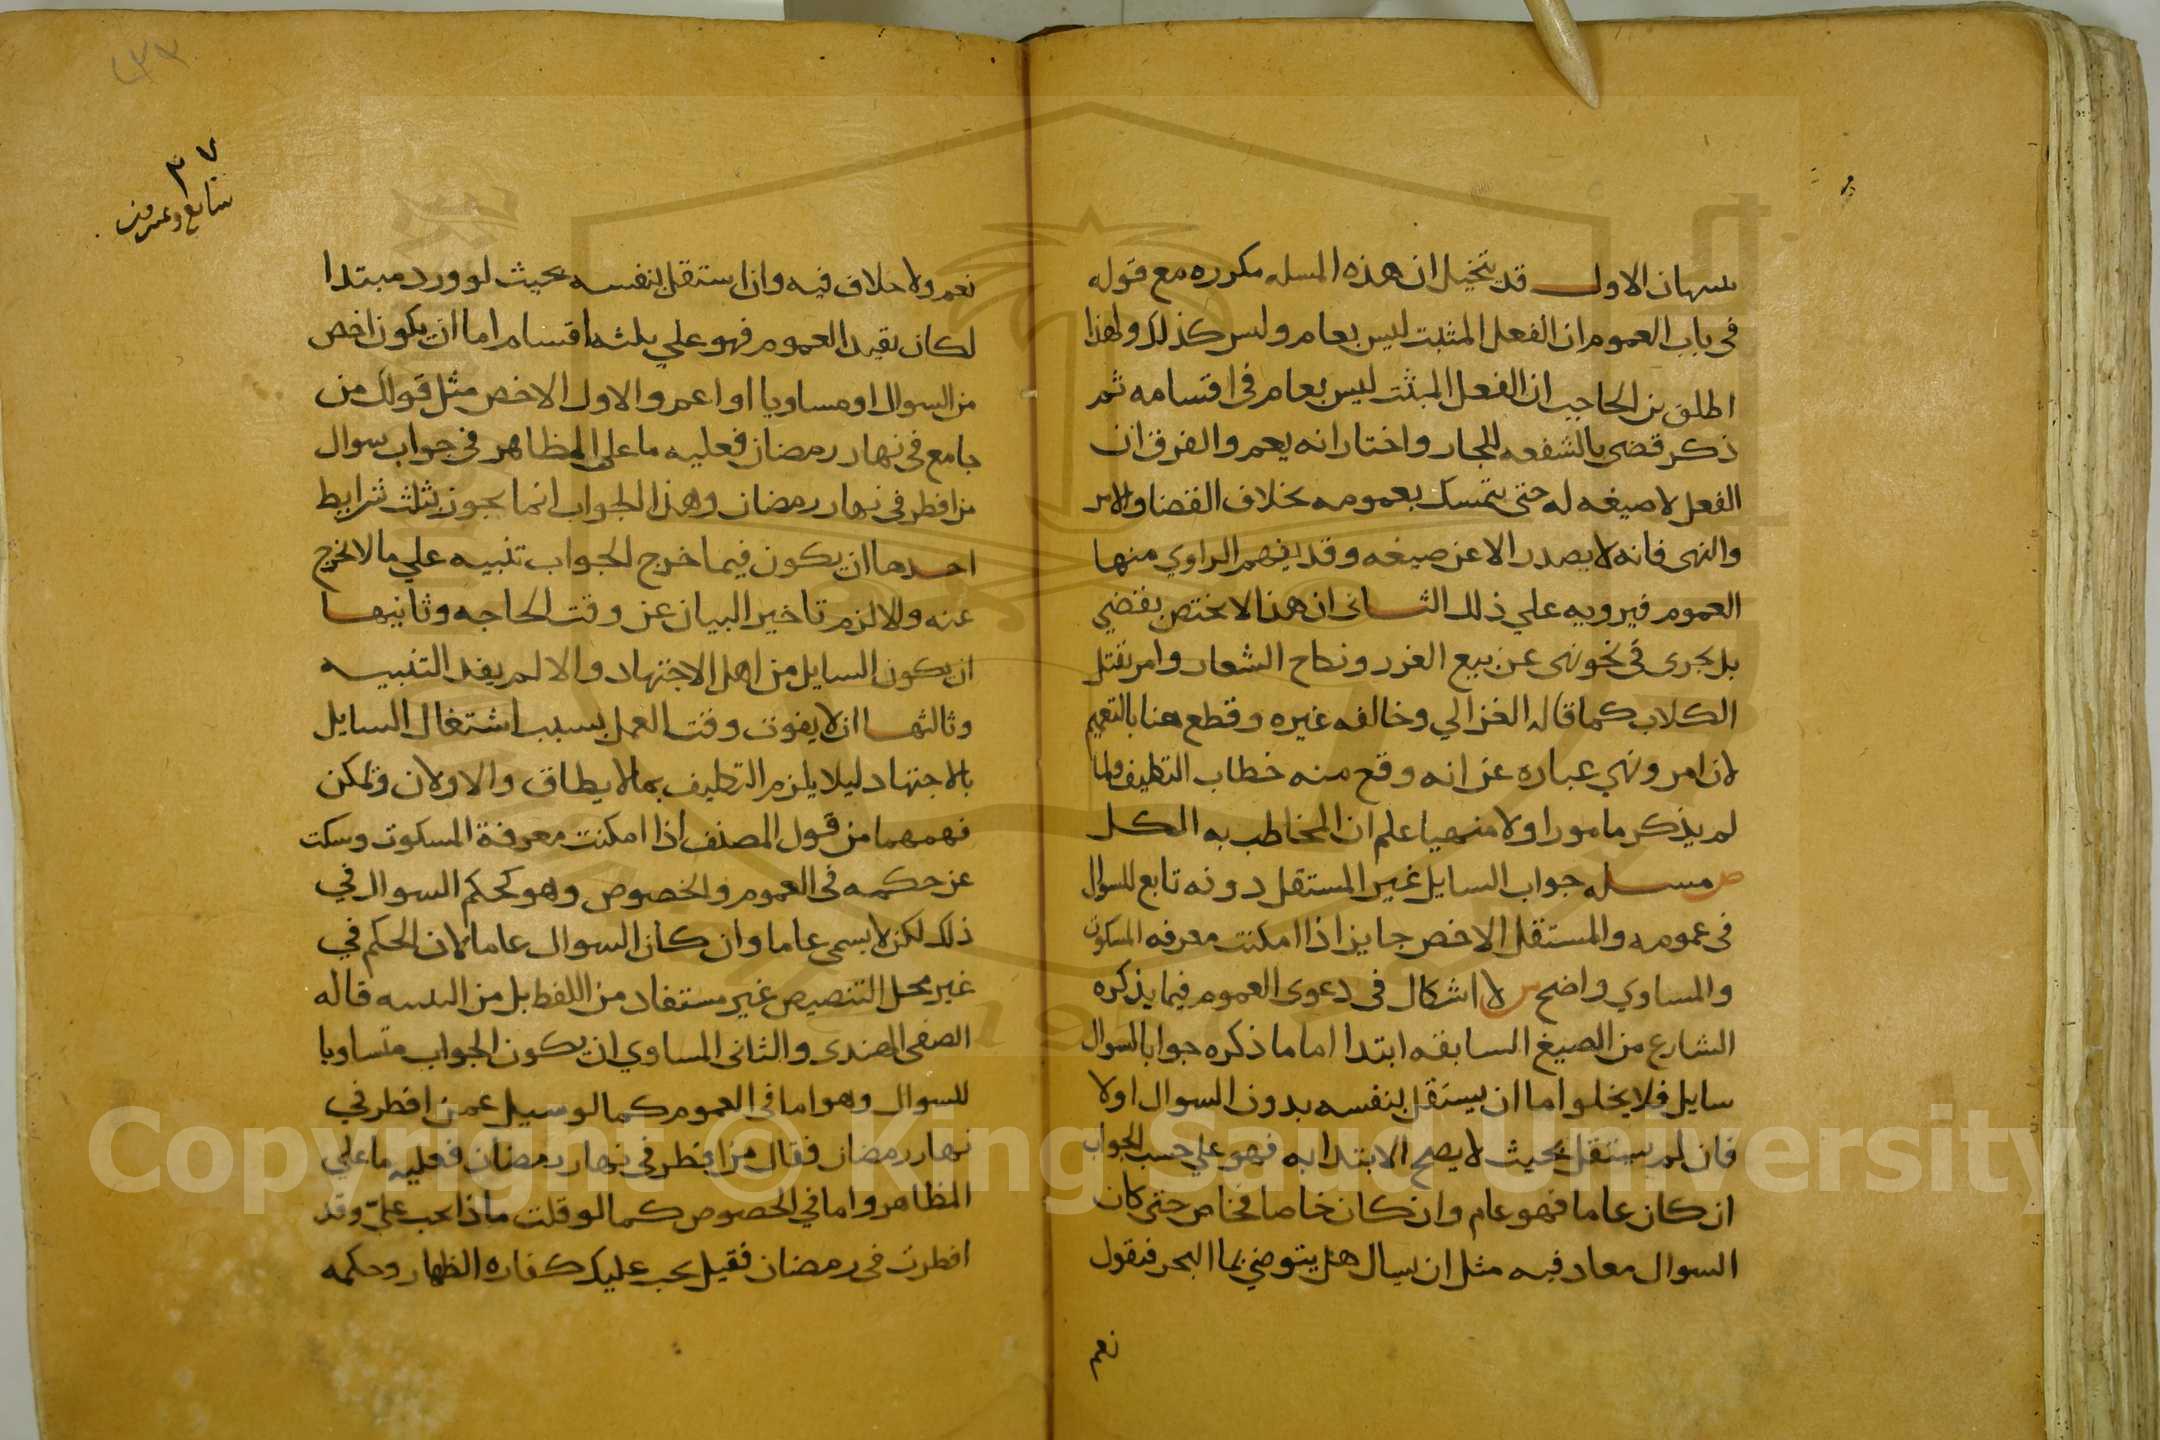 تنبيهان الاول قد يتخيل ان هذه المسله مكرره مع قوله
في باب العموم ان الفعل المثبت ليس بعام وليس كذلك ولهذا
اطلق بن الحاجب ان الفعل المثبت ليس بعام في اقسامه ثم
ذكر قضى بالشفعه للجار واختار انه يعم والفرق ان
الفعل لا صيغه له حتى يتمسك بعمومه بخلاف القضا والامر
والنهى فانه لا يصدر الا عن صيغه وقد يفهم الراوي منها
العموم فيرويه علي ذلك الثاني ان هذا لا يختص بقضي
بل يجرى في نحو نهى عن بيع الغرر ونكاح الشعار وامر بقتل
الكلاب كما قاله الغزالي وخالفه غيره وقطع هنا بالتعميم
لان امر ونهي عباره عن انه وقع منه خطاب التكليف ولما
لم يذكر مامورا ولا منهيا علم ان المخاطب به الكل
ص مسله جواب السايل غير المستقل دونه تابع للسوال
في عمومه والمستقل الاخص جايز اذا امكنت معرفه المسكوت
والمساوي واضح س لا اشكال في دعوى العموم فيما يذكره
الشارع من الصيغ السابقه ابتدا اما ما ذكره جوابا لسوال
سايل فلا يخلوا اما ان يستقل بنفسه بدون السوال اولا
فان لم يستقل بحيث لا يصح الابتدا به فهو علي حسب الجواب
ان كان عاما فهو عام وان كان خاصا فخاص حتى كان
السوال معاد فيه مثل ان يسال هل يتوضي بما البحر فيقول
نعم
٢٧
سابع وعشرين
نعم ولا خلاف فيه وان استقل بنفسه بحيث لو ورد مبتدا
لكان يفيد العموم فهو علي ثلثه اقسام اما ان يكون اخص
من السوال او مساويا او اعم والاول الاخص مثل قولك من
جامع في نهار رمضان فعليه ما على المظاهر في جواب سوال
من افطر في نهار رمضان وهذا الجواب انما يجوز بثلث شرايط
احدها ان يكون فيما خرج الجواب تنبيه علي ما لا يخرج
عنه والا لزم تاخير البيان عن وقت الحاجه وثانيها
ان يكون السايل من اهل الاجتهاد والا لم يفد التنبيه
وثالثها ان لا يفوت وقت العمل بسبب اشتغال السايل
بالاجتهاد ليلا يلزم التكليف بما لا يطاق والاولان ويمكن
فهمهما من قول المصنف اذا امكنت معرفة المسكوت وسكت
عن حكمه في العموم والخصوص وهو كحكم السوال في
ذلك لكن لا يسمى عاما وان كان السوال عاما لان الحكم في
غير محل التنصيص غير مستفاد من اللفظ بل من التنبيه قاله
الصفى الهندى والثانى المساوي ان يكون الجواب متساويا
للسوال وهو اما في العموم كما لو سيل عمن افطر في
نهار رمضان فقال من افطر في نهار رمضان فعليه ما على
المظاهر واما في الخصوص كما لو قلت ماذا يجب عليّ وقد
افطرت في رمضان فقيل يجب عليك كفاره الظهار وحكمه
Copyright © King Saud University